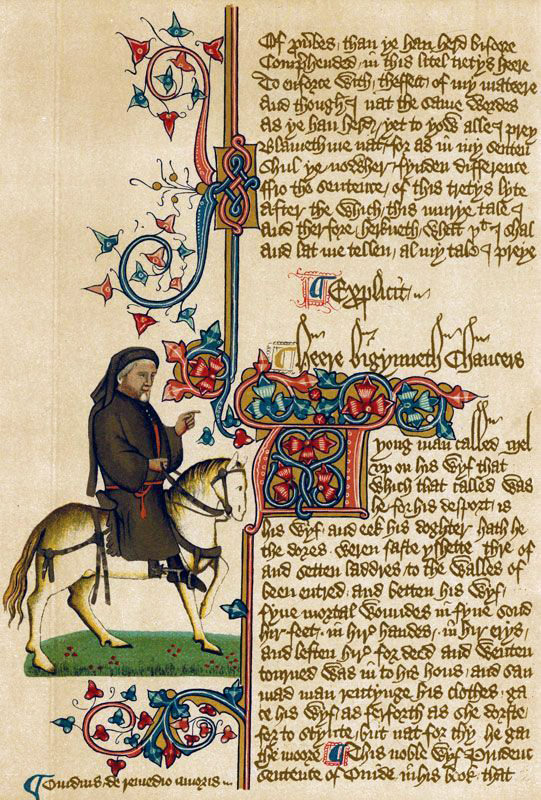 Of prou̇bes / than ye han herd bifore
Comp̱hended / in this litel tretys heere
To enforce with / theffect of my mateere
And though I nat the same wordes
As ye han herd / yet to yow alle I prey
Blameth me nat / for as in my senten
Shul ye nowher / fynden difference
ffro the sentence / of this tretys lyte
After the which / this murye tale I
And therfore / herkneth / what þt I shal
And lat me tellen / al my tale I preye
¶ Explicit
¶ Heere bigynneth Chaucers
A yong man called Mel
vp on his wyf that
which that called was
he for his desport / is
his wyf / and eek his doghter / hath he
the dores / weren faste yshette / thre of
and setten laddres / to the walles of
been entred / and betten his wyf /
fyue mortal woundes / in fyue sond
hir feet / in hir handes / in hir erys /
and leften hir / for deed / and wenten
torned was in to his hous / and saw
mad man / rentynge his clothes / ga
ce his wyf / as ferforth as she dorste
for to stynte / but nat for thy he ga
the moore ¶ This noble wyf Prudenc
sentence of Ouide / in his book / that
¶ Ouidius de remedio amoris